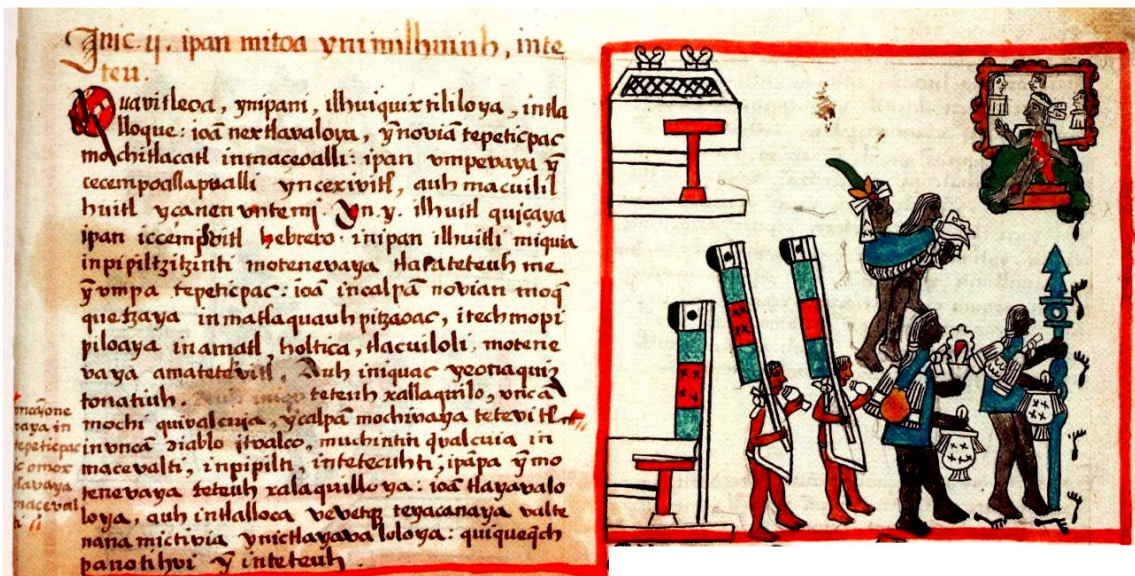 Inic. ij. ipan mitoa ynimilhuiuh, inte
teu.
Quavitleoa, ynipani, ilhuiquixtililoya, intla
lloque: ioā nextlavaloya, ȳ noviā tepeticpac
mochitlacatl inmaceoalli: ipan vmpevaya ȳ
cecempoallapualli yncexivitl, auh macuilil
huitl ycanen vntemj. Yn. y. ilhuitl quiçaya
ipan iccempoitl hebrero. inipan ilhuitli miquia
inpipiltzitzinti motenevaya tlacateteuh me
ȳ vmpa tepeticpac: ioā incalpā novian moq̄
quetzaya inmatlaquauh pitzaoac, itech mopi
piloaya inamatl, holtica, tlacuiloli, motene
vaya amatetevitl. Auh iniquac yeonaquiz
tonatiuh. teteuh xallaqujlo, vncā
mochi quivalcuja, ycalpā mochivaya tetevitl
invncā diablo itvalco, muchintin qvalcuia in
macevalti, inpipilti, intetecuhti, ipāpa ȳ mo
tenevaya teteuh xalaquilloya: ioā tlayavalo
loya, auh intlalloca vevetq̄ teyacanaya valte
nana mictivia ynictlayavaloloya: quiquequech
panotihvi ȳ inteteuh.
vncā yone
vaya in
tepeticpac
maceval